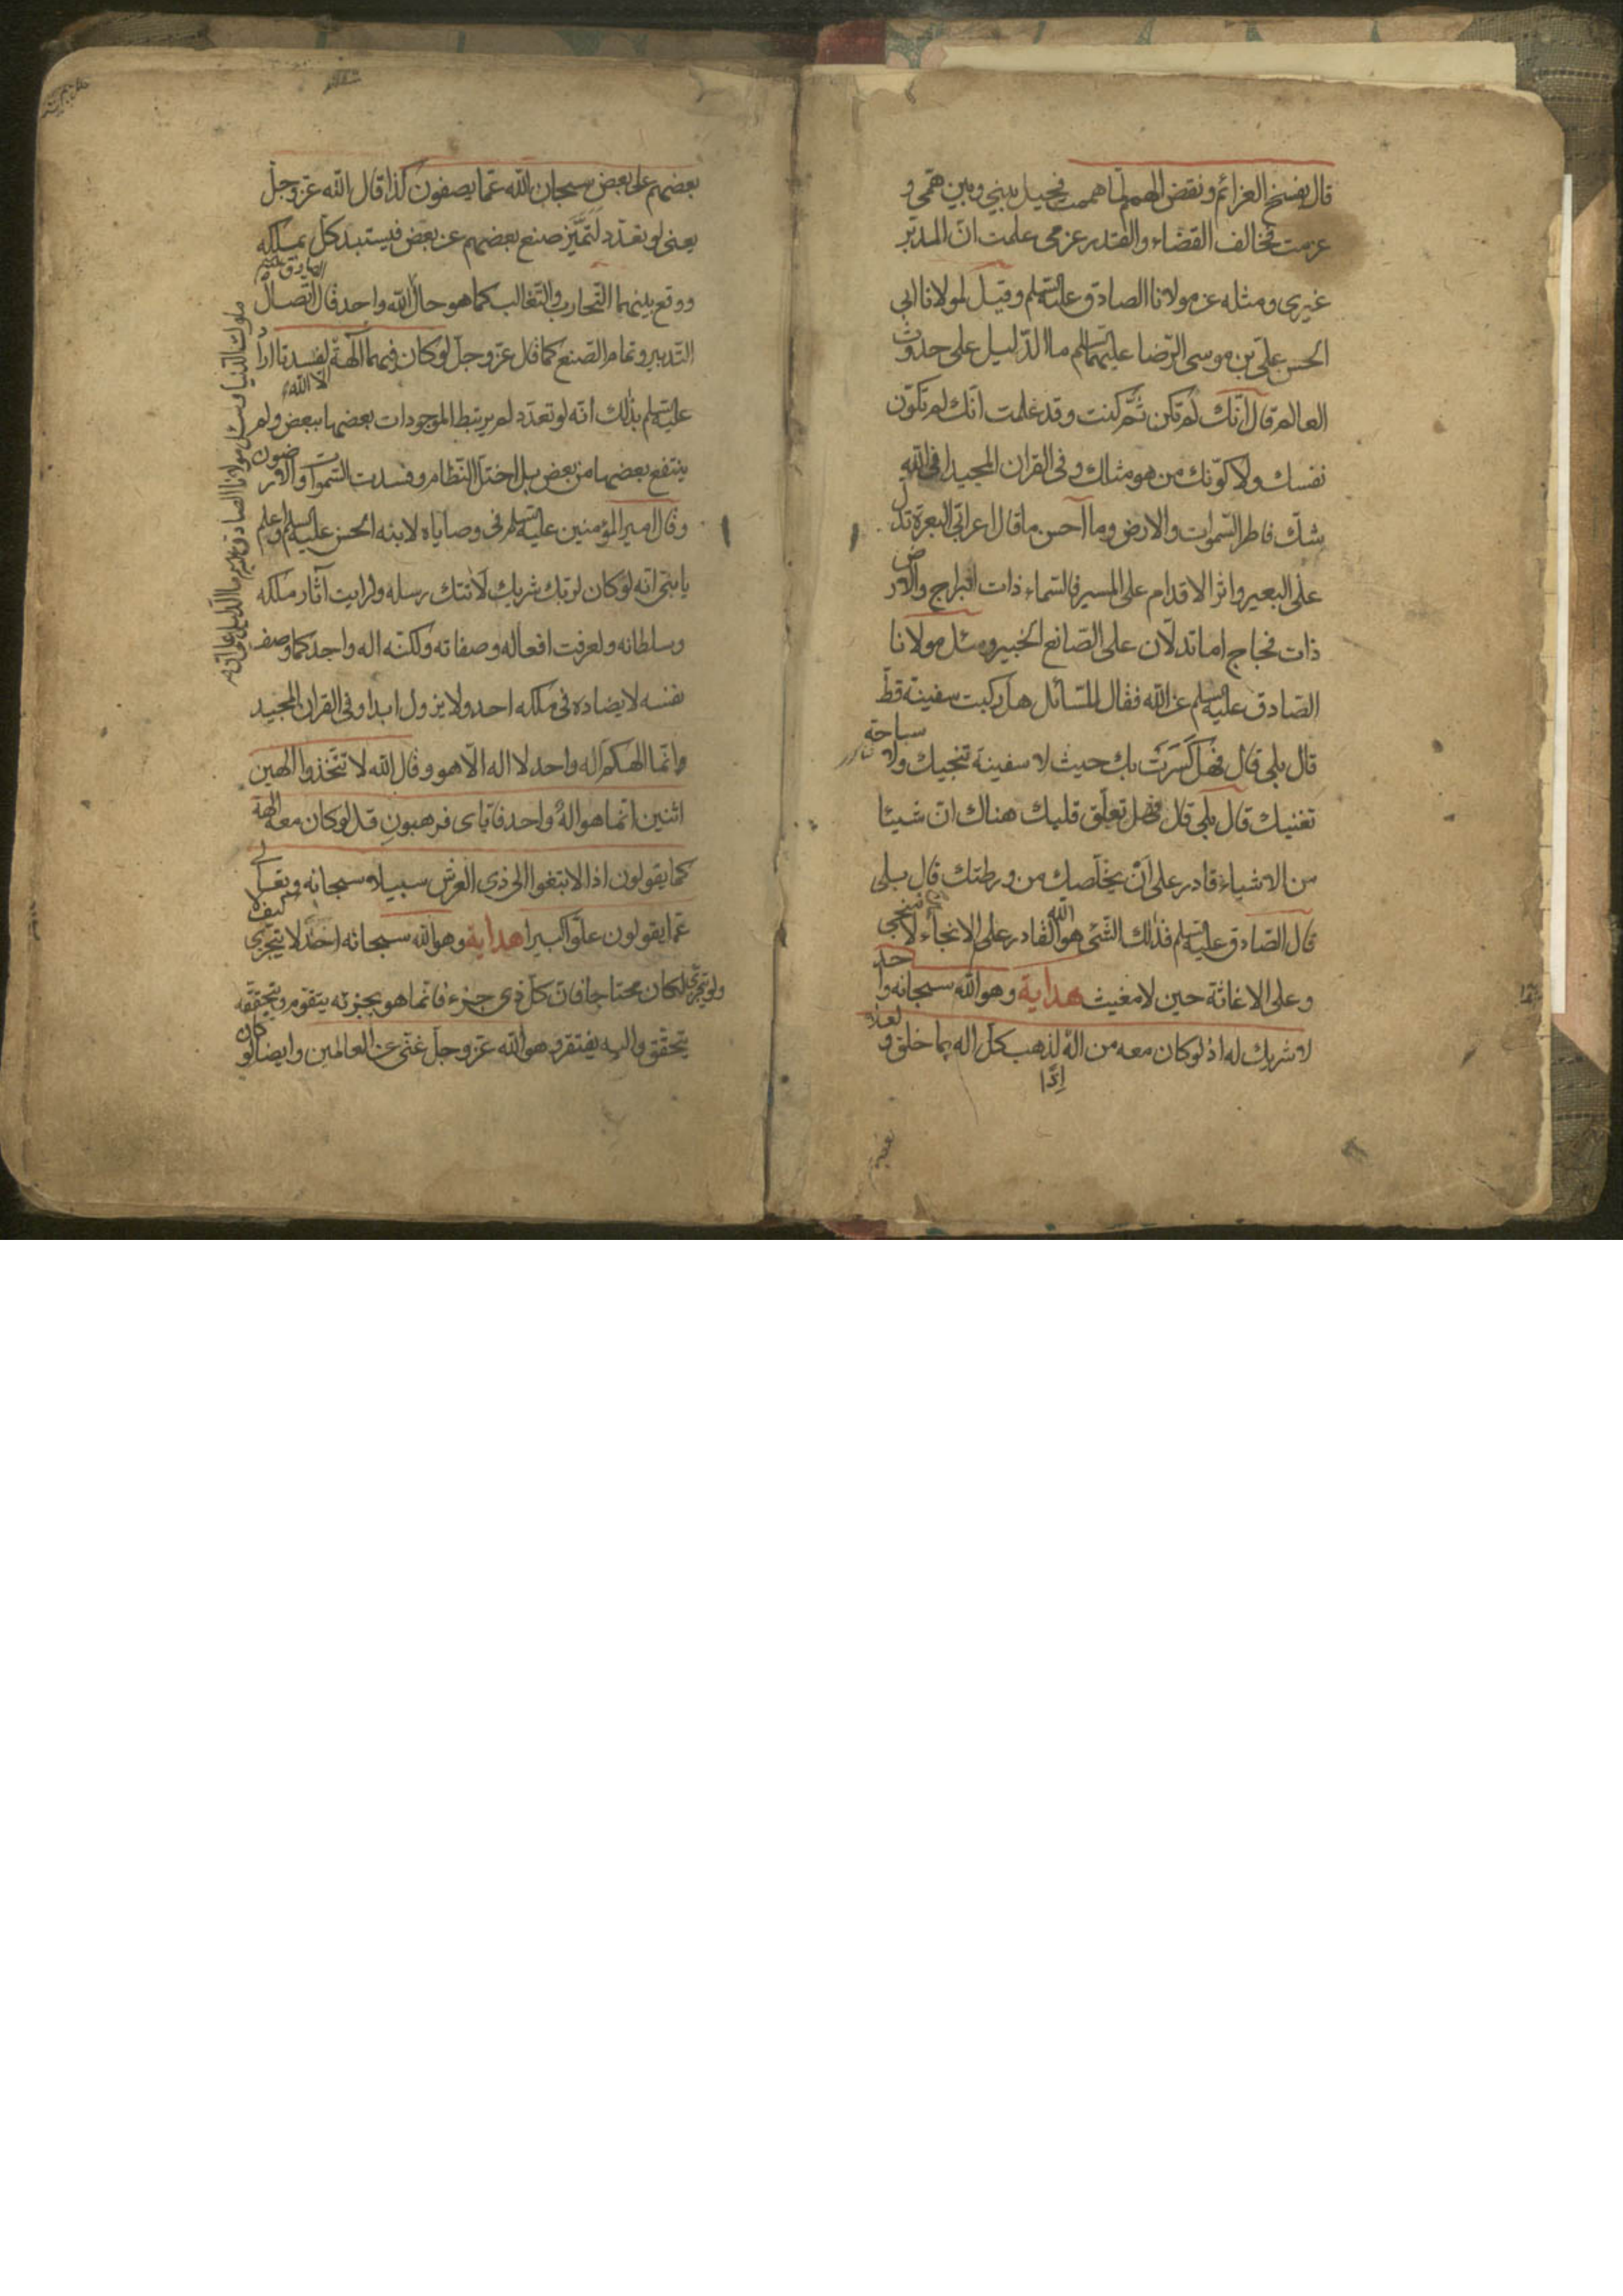 قال بفسخ العزائم ونقض الهمم لما هممت فحيل بيني وبين همي و
عزمت فخالف القضاء والقدر عزمي علمت ان المدبر
غيري ومثله عن مولانا الصادق عليه السلم وقيل لمولانا ابي
الحسن علي بن موسى الرضا عليهما السلم ما الدليل على حدوث
العالم قال انك لم تكن ثم كنت وقد علمت انك لم تكون
نفسك ولا كونك من هو مثلك وفي القران المجيد افي الله
شك فاطر السموات والارض وما احسن ما قال اعرابي البعرة تدل
على البعير واثر الاقدام على المسير فالسماء ذات ابراج والارض
ذات فجاج اما تدلان على الصانع الخبير وسئل مولانا
الصادق عليه السلم عن الله فقال للسائل هل ركبت سفينة قط
قال بلى قال فهل كسرت بك حيث لا سفينة تنجيك ولا سباحة
تغنيك قال بلى قال فهل تعلق قلبك هناك ان شيئا
من الاشياء قادر على ان يخلصك من ورطتك قال بلى
قال الصادق عليه السلم فذلك الشئ هو الله القادر على الانجاء حين لا منجي
وعلى الاغاثة حين لا مغيث هداية وهو الله سبحانه واحد
لا شريك له اذ لو كان معه من اله لذهب كل اله بما خلق ولعلا
اذا
بعضهم
بعضهم على بعض سبحان الله عما يصفون كذا قال الله عز وجل
يعني لو تعدد لتميز صنع بعضهم عن بعض فيستبد كل بملكه
ووقع بينهما التحارب والتغالب كما هو حال ملوك الدنيا وسئل مولانا الصادق عليه السلم ما الدليل على ان الله واحد قال الصادق اتصال
التدبير وتمام الصنع كما قال عز وجل لو كان فيهما آلهة الا الله لفسدتا اراد
عليه السلم بذلك انه لو تعدد لم يرتبط الموجودات بعضها ببعض ولم
ينتفع بعضها من بعض بل اختل النظام وفسدت السموات والارضون
وقال امير المؤمنين عليه السلم في وصاياه لابنه الحسن عليه السلم واعلم
يا بني انه لو كان لربك شريك لاتتك رسله ولرايت آثار ملكه
وسلطانه ولعرفت افعاله وصفاته ولكنه اله واحد كما وصف
نفسه لا يضاده في ملكه احد ولا يزول ابدا وفي القران المجيد
وانما الهكم اله واحد لا اله الا هو وقال الله لا تتخذوا الهين
اثنين انما هو اله واحد فاياي فارهبون قل لو كان معه الهة
كما يقولون اذا لابتغوا الى ذي العرش سبيلا سبحانه وتعالى
عما يقولون علوا كبيرا هداية وهو الله سبحانه احد لا يتجزى كيف
ولو تجزى لكان محتاجا فان كل ذي جزء فانما هو بجزئه يتقوم وبتحققه
يتحقق واليه يفتقر وهو الله عز وجل غني عن العالمين وايضا لو كان